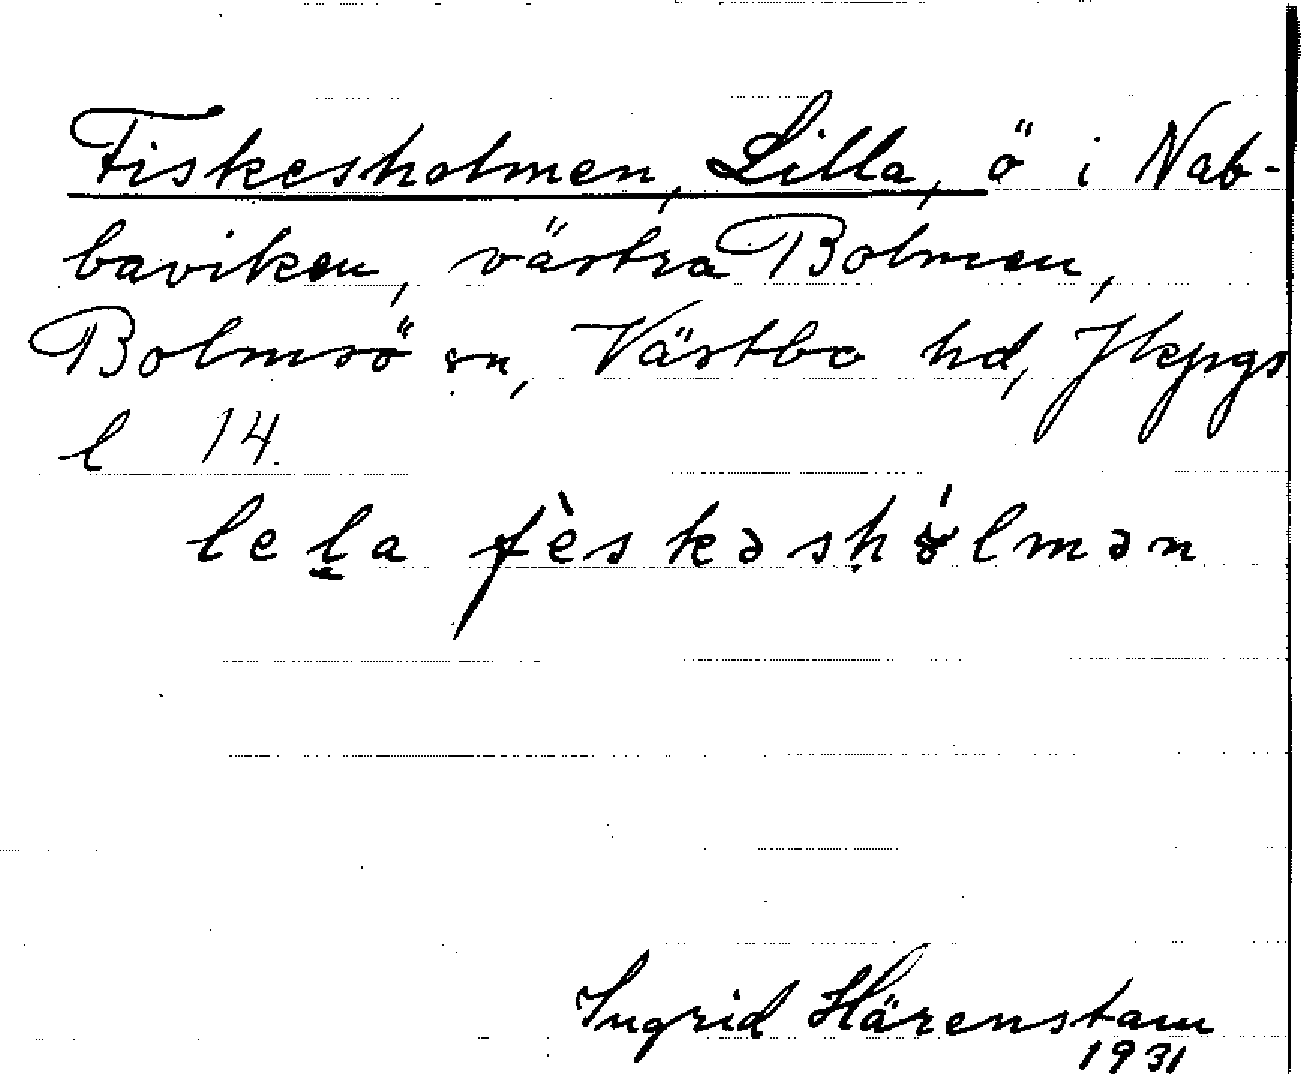 Fiskesholmen, Lilla, ö i Nab-
baviken, västra Bolmen,
Bolmsö sn, Västbo hd, Jkpgs
l 14.
lel̬a fèskəshɤ́lmən
Ingrid Härenstam
1931